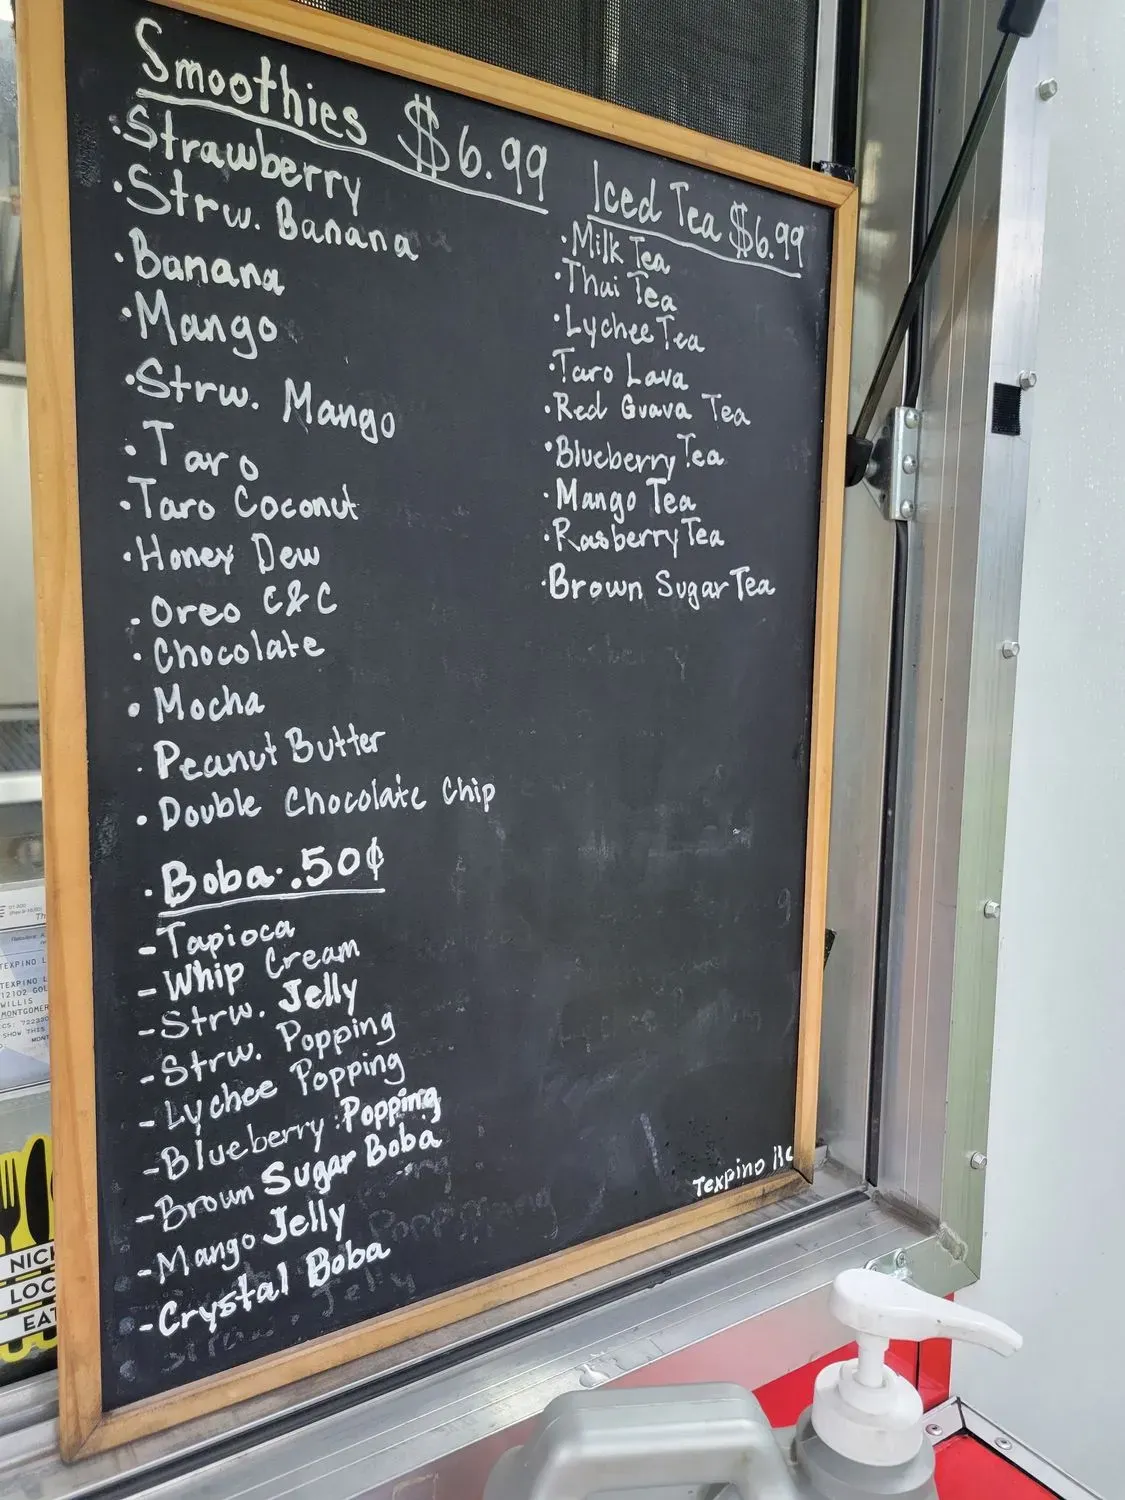 Smoothies $6.99
·Strawberry
·Strw. Banana
·Banana
·Mango
·Strw. Mango
·Taro
·Taro Coconut
·Honey Dew
·Oreo C&C
·Chocolate
·Mocha
·Peanut Butter
·Double Chocolate Chip
·Boba·.50¢
-Tapioca
-Whip Cream
-Strw. Jelly
-Strw. Popping
-Lychee Popping
-Blueberry Popping
-Brown Sugar Boba
-Mango Jelly
-Crystal Boba
Iced Tea $6.99
·Milk Tea
·Thai Tea
·Lychee Tea
·Taro Lava
·Red Guava Tea
·Blueberry Tea
·Mango Tea
·Rasberry Tea
·Brown Sugar Tea
Texpino llc
TEXPINO L
TEXPINO L
WILLIS
SHOW THIS
NICK
LOC
EAT